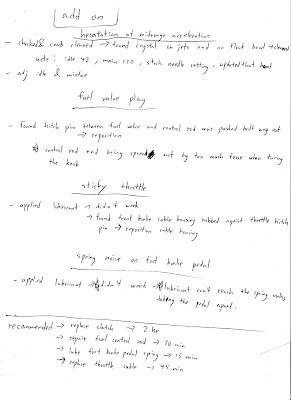 add on
hesetation at midrange acceleration
- checked & carb cleaned → found crystal on jets and on float bowl → cleaned
note: idle 42, main 120, stock needle setting, updated float bowl
- adj idle & mixture
fuel valve play
- found hitch pin between fuel valve and control rod was pushed half way out
→ reposition
* control rod end being spread out by too much force when turing
the knob
sticky throttle
- applied lubricant → didn't work
→ found front brake cable housing rubbed against throttle hitch
pin → reposition cable housing
spring noise on foot brake pedal
- applied lubricant → didn't work → lubricant can't reach the spring unless
taking the pedal apart.
recommended → replace clutch → 2 hr
→ repair fuel control rod → 30 min
→ lube foot brake pedal spring → 15 min
→ replace throttle cable → 45 min